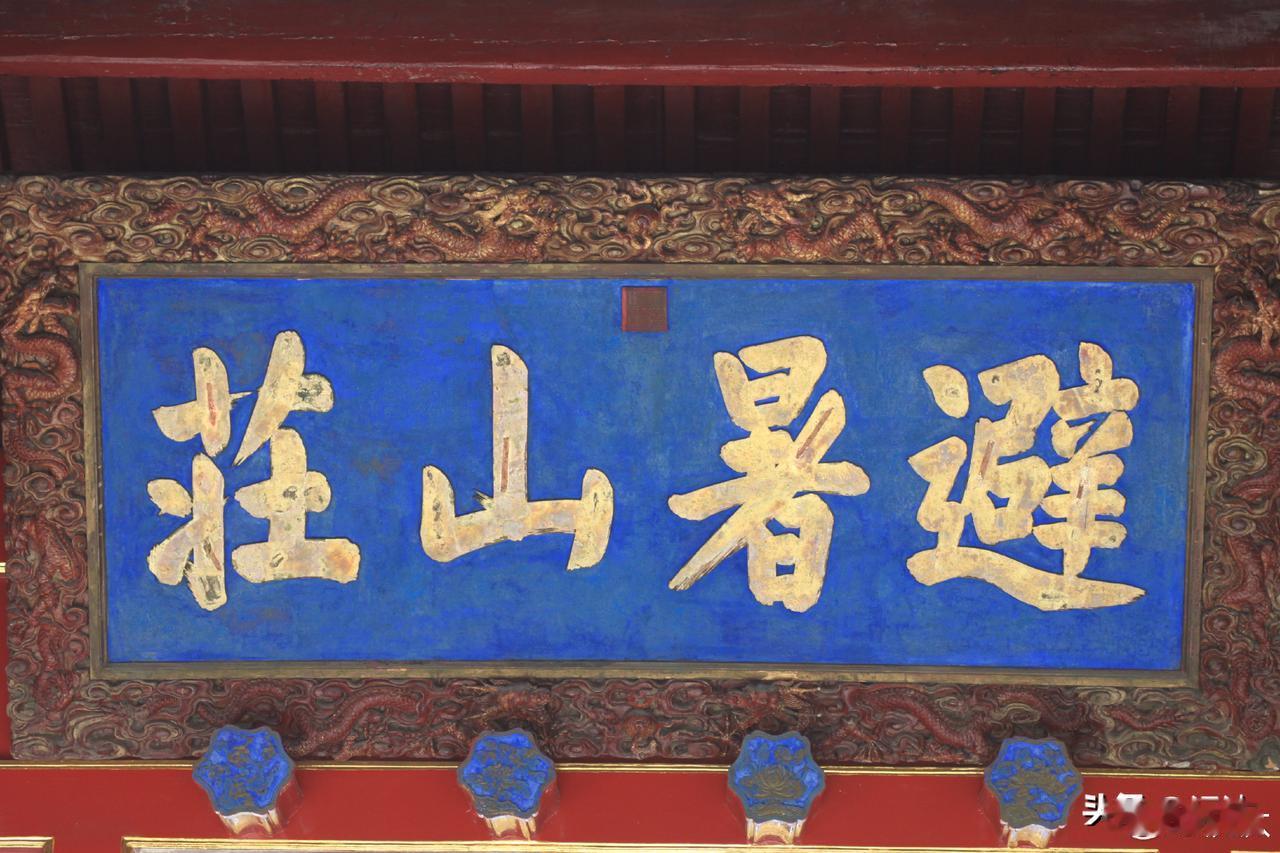 避暑山莊
头条